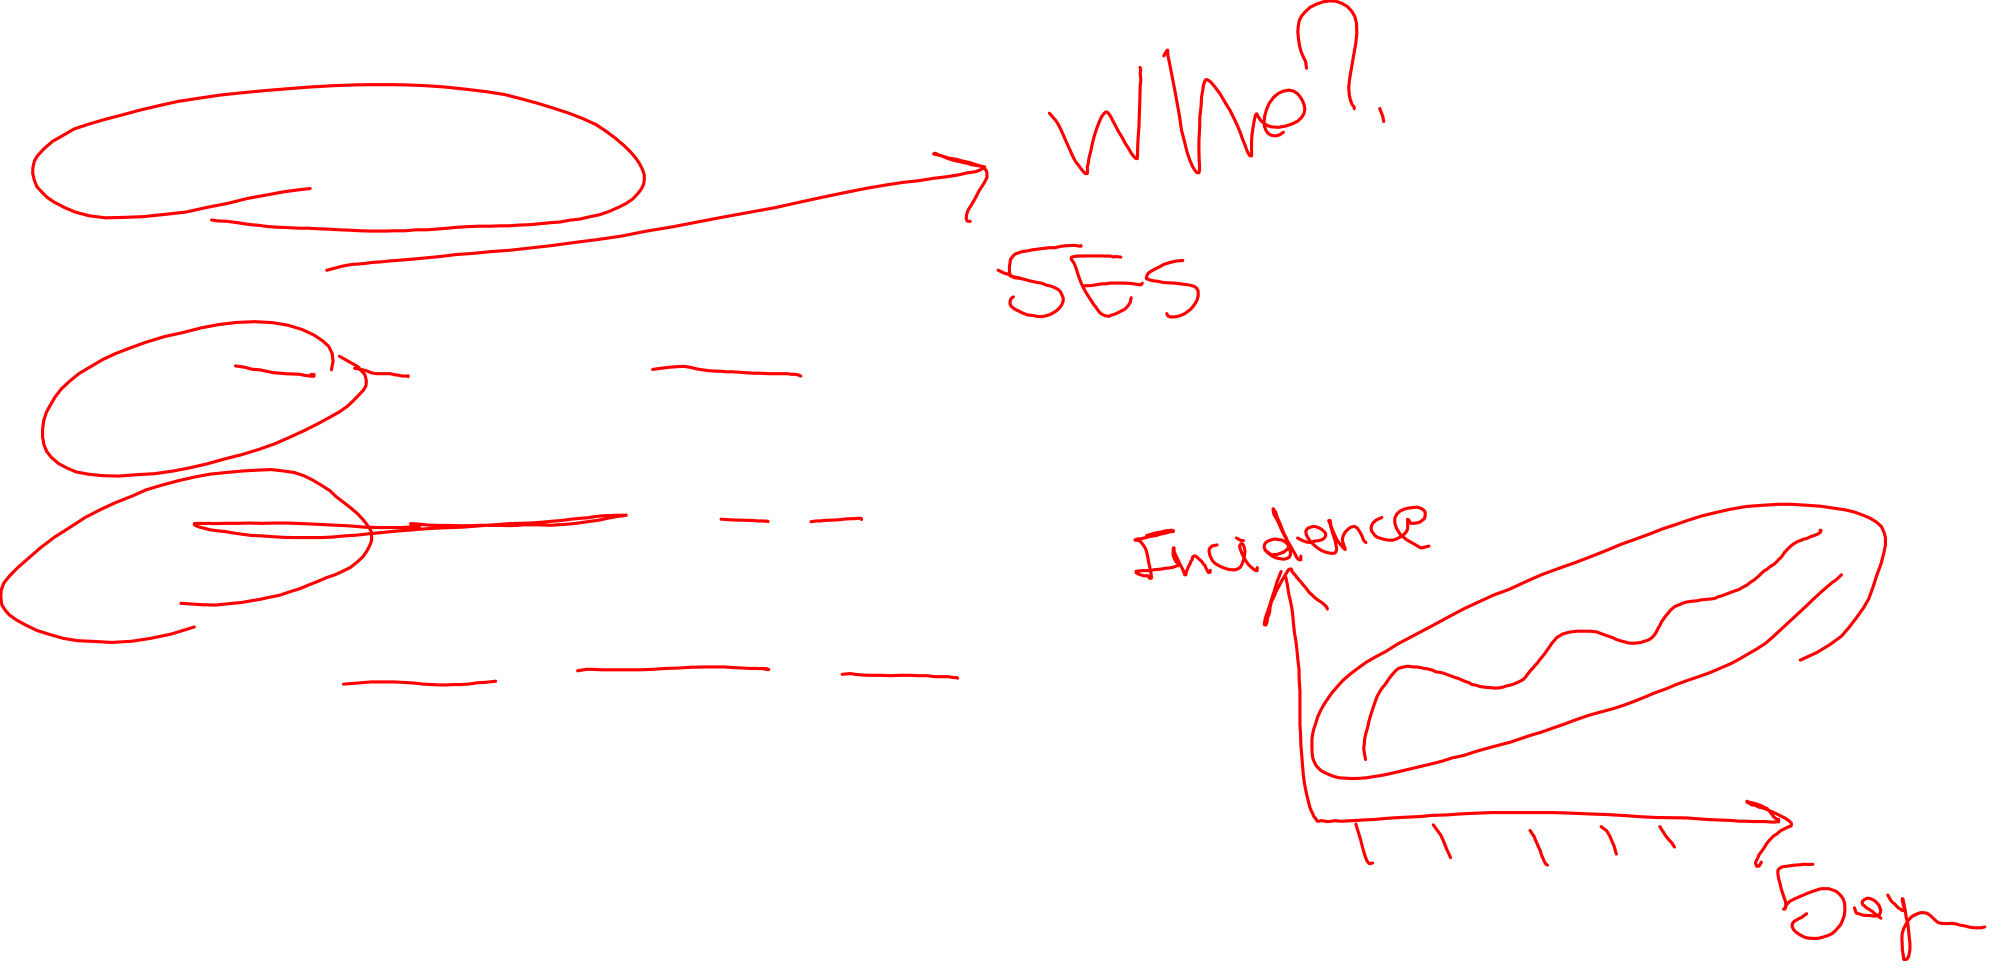 Who?
SES
Incidence